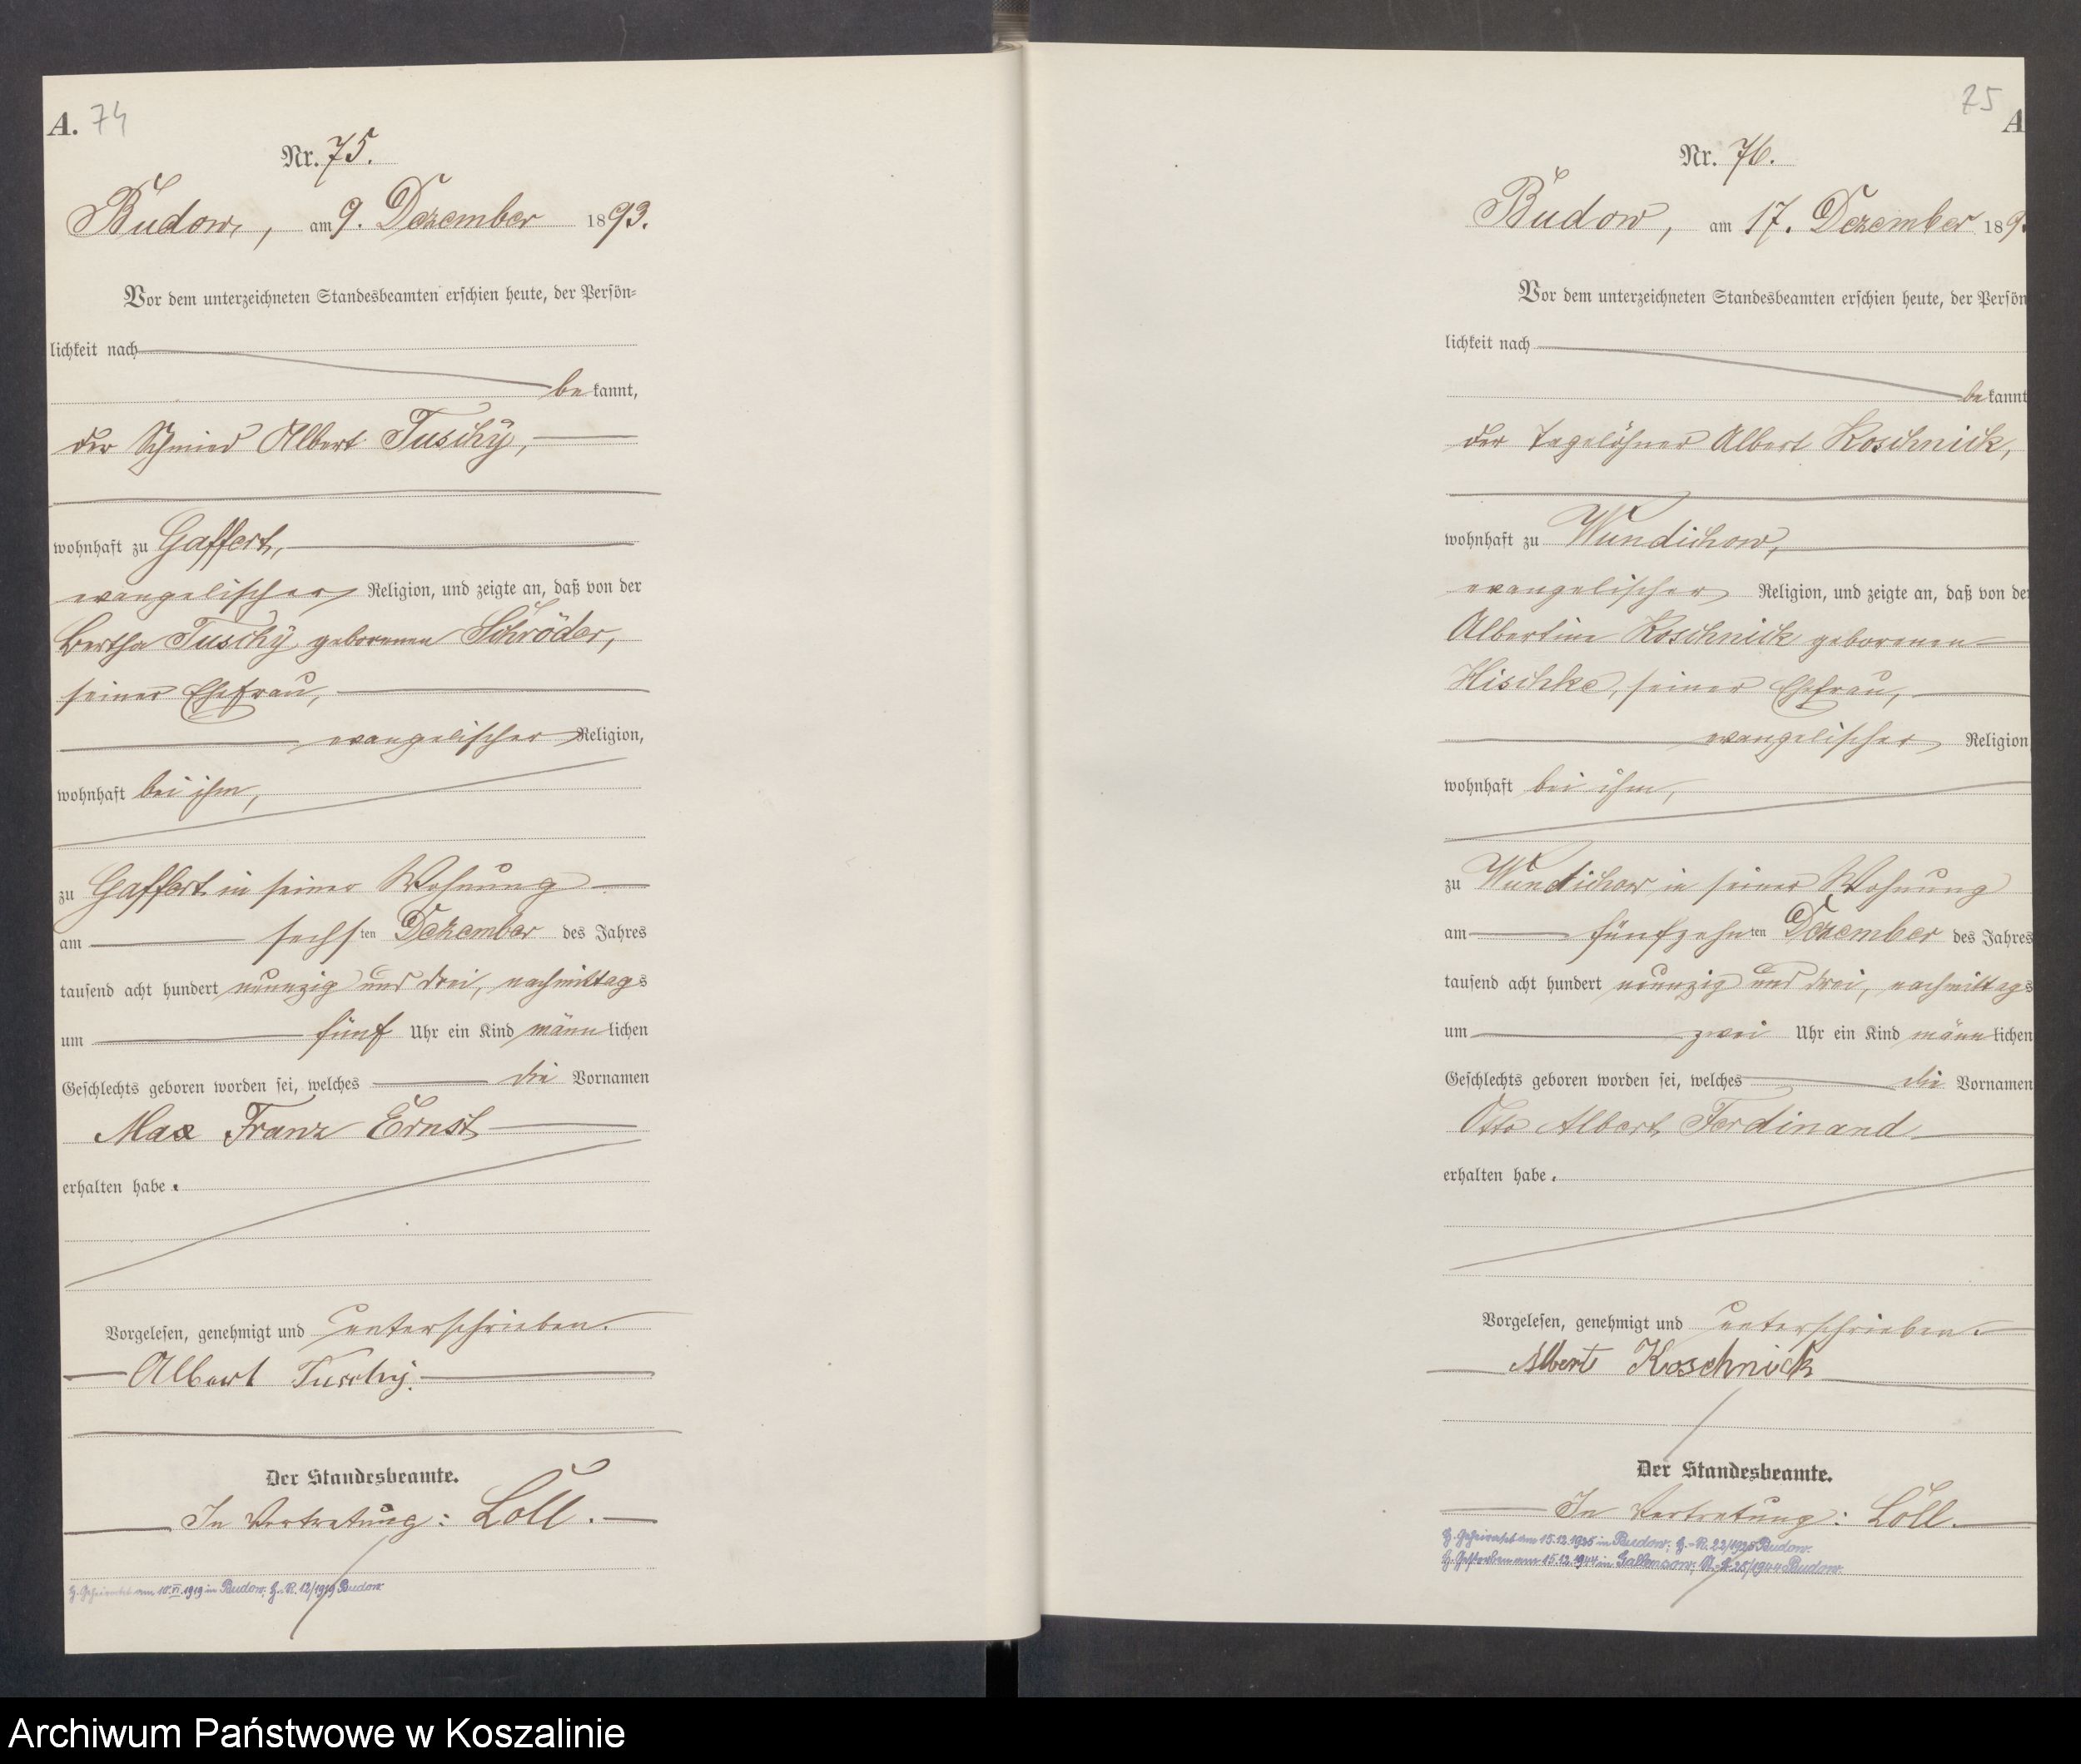 A. 74
Nr. 75.
Budow, am 9. Dezember 1893.
Vor dem unterzeichneten Standesbeamten erschien heute, der Persön-
lichkeit nach
be kannt,
der Schmied Albert Tuschÿ,
wohnhaft zu Gaffert,
evangelischer Religion, und zeigte an, daß von der
Bertha Tuschÿ geborenen Schröder,
seiner Ehefrau,
evangelischer Religion,
wohnhaft bei ihm,
zu Gaffert in seiner Wohnung
am sechsten Dezember des Jahres
tausend acht hundert neunzig und drei, nachmittags
um fünf Uhr ein Kind männlichen
Geschlechts geboren worden sei, welches die Vornamen
Max Franz Ernst
erhalten habe.
Vorgelesen, genehmigt und unterschrieben.
Albert Tuschÿ.
Der Standesbeamte.
In Vertretung: Loll.
H. Geheiratet am 10.VI.1919 in Budow; H.-R. 12/1919 Budow.
75
A
Nr. 76.
Budow, am 17. Dezember 189
Vor dem unterzeichneten Standesbeamten erschien heute, der Persön
lichkeit nach
be kannt
der Tagelöhner Albert Koschnick,
wohnhaft zu Wundichow,
evangelischer Religion, und zeigte an, daß von der
Albertine Koschnick geborenen
Hischke, seiner Ehefrau,
evangelischer Religion
wohnhaft bei ihm,
zu Wundichow in seiner Wohnung
am fünfzehnten Dezember des Jahres
tausend acht hundert neunzig und drei, nachmittags
um zwei Uhr ein Kind männlichen
Geschlechts geboren worden sei, welches die Vornamen
Otto Albert Ferdinand
erhalten habe.
Vorgelesen, genehmigt und unterschrieben.
Albert Koschnick
Der Standesbeamte.
In Vertretung: Loll.
H. Geheiratet am 15.12.1925 in Budow; H.-R. 22/1925 Budow.
H. Gestorben am 15.12.1944 in Gallensow; 25/1944 Budow.
Archiwum Państwowe w Koszalinie